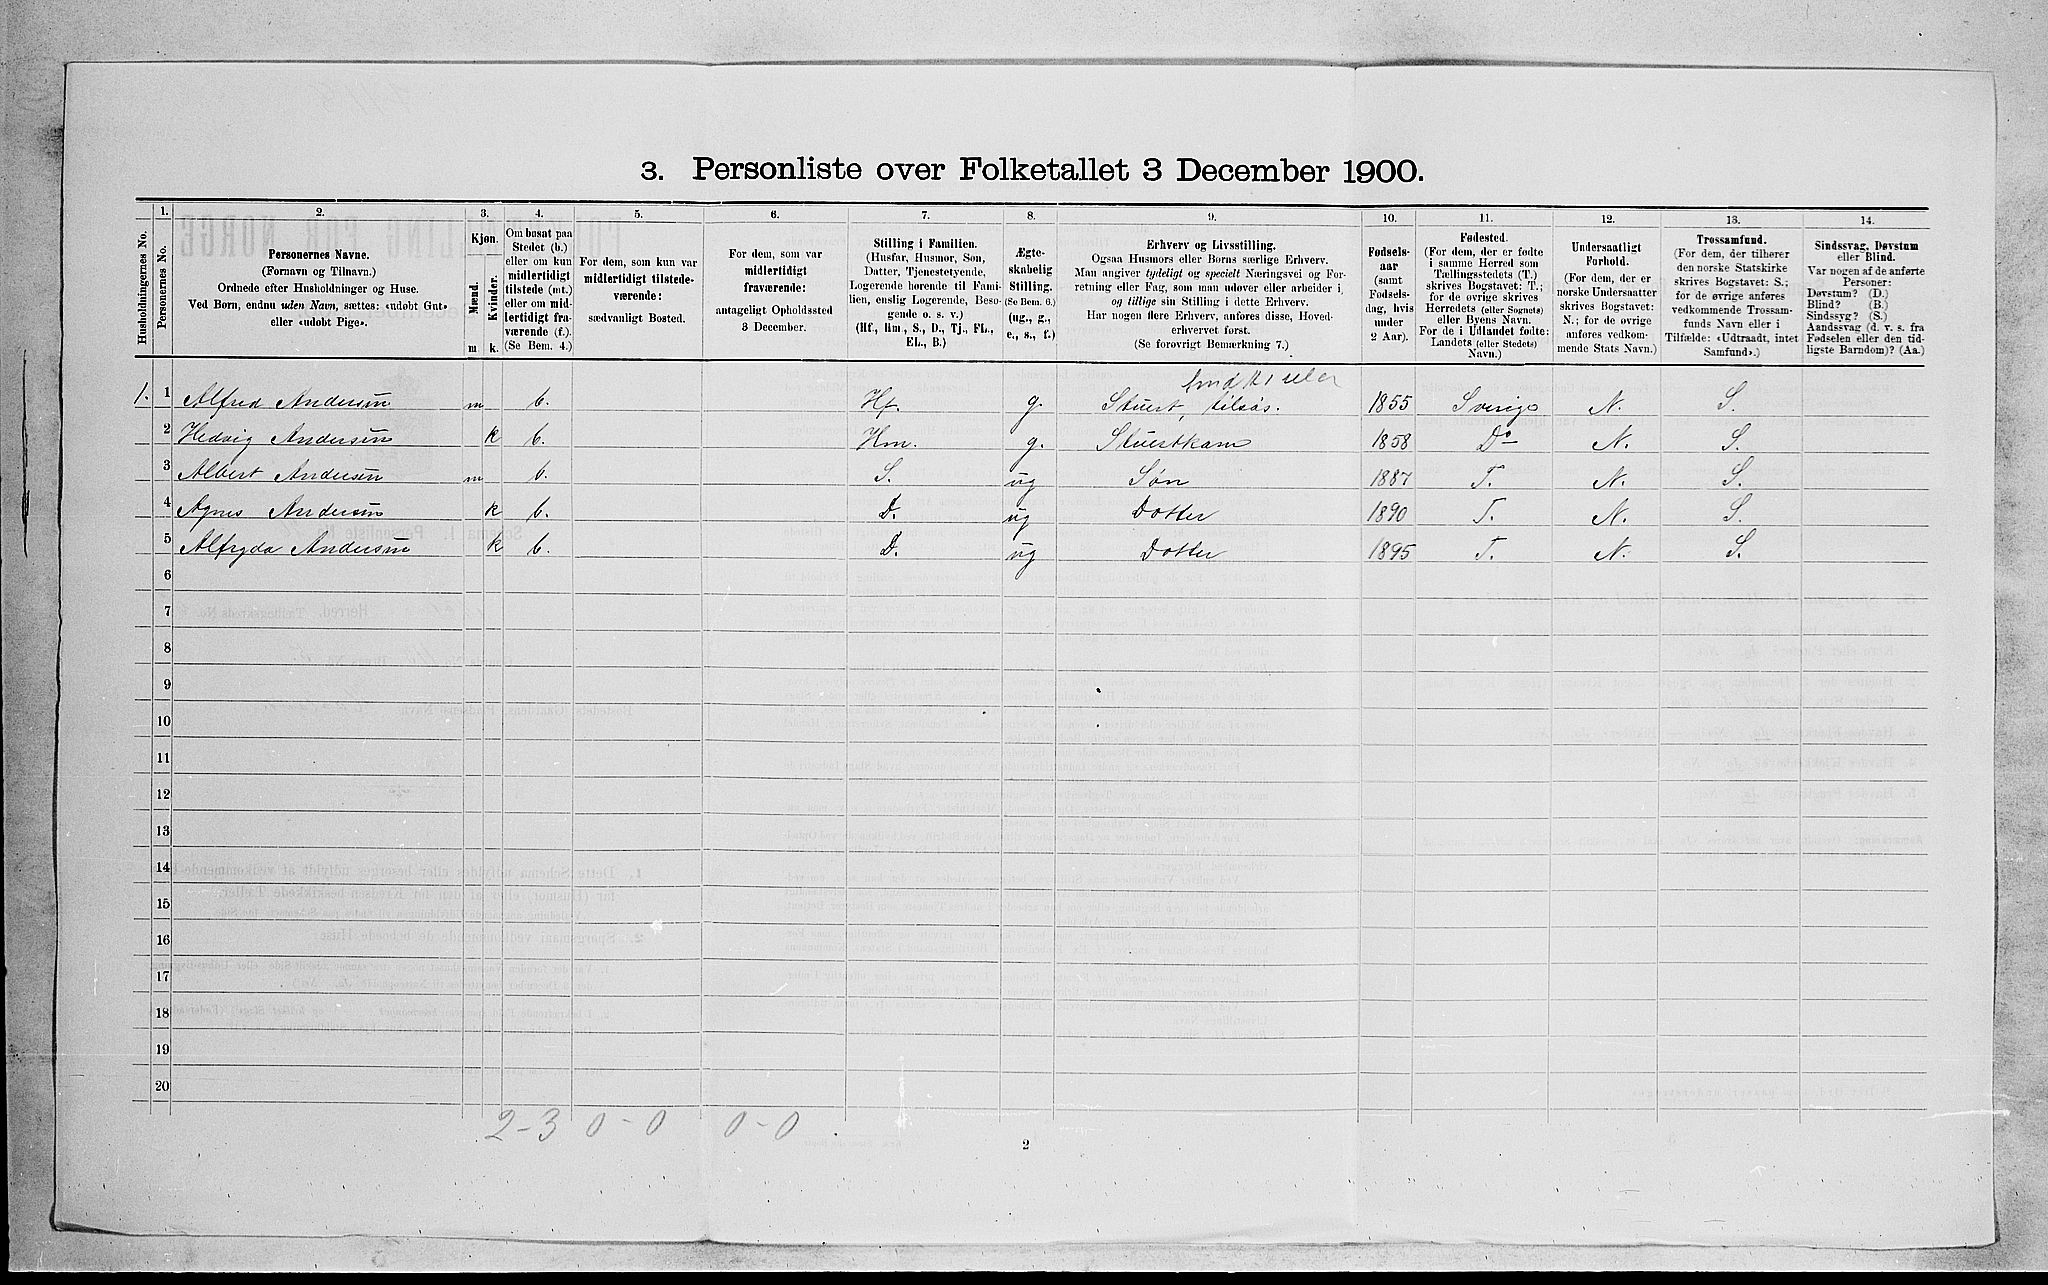 3. Personliste over Folketallet 3 December 1900.
1. 2. 3. 4. 5. 6. 7. 8. 9. 10. 11. 12. 13. 14.
Husholdningernes No.
Personernes No.
Personernes Navne.
(Fornavn og Tilnavn.)
Ordnede efter Husholdninger og Huse.
Ved Børn, endnu uden Navn, sættes: «udøbt Gut»
eller «udøbt Pige».
Kjøn.
Mænd. Kvinder.
m k.
Om bosat paa
Stedet (b.)
eller om kun
midlertidigt
tilstede (mt.)
eller om mid-
lertidigt fra-
værende (f.).
(Se Bem. 4.)
For dem, som kun var
midlertidigt tilstede-
værende:
sædvanligt Bosted.
For dem, som var
midlertidigt
fraværende:
antageligt Opholdssted
3 December.
Stilling i Familien.
(Husfar, Husmor, Søn,
Datter, Tjenestetyende,
Logerende hørende til Fami-
lien, enslig Logerende, Besø-
gende o. s. v.)
(Hf., Hm., S., D., Tj., FL.,
EL., B.)
Ægte-
skabelig
Stilling.
(Se Bem. 6.)
(ug., g.,
e., s., f.)
Erhverv og Livsstilling.
Ogsaa Husmors eller Børns særlige Erhverv.
Man angiver tydeligt og specielt Næringsvei og For-
retning eller Fag, som man udøver eller arbeider i,
og tillige sin Stilling i dette Erhverv.
Har nogen flere Erhverv, anføres disse, Hoved-
erhvervet først.
(Se forøvrigt Bemærkning 7.)
Fødsels-
aar
(samt
Fødsels-
dag, hvis
under
2 Aar).
Fødested.
(For dem, der er fødte
i samme Herred som
Tællingsstedets (T.)
skrives Bogstavet: T.;
for de øvrige skrives
Herredets (eller Sognets)
eller Byens Navn.
For de i Udlandet fødte:
Landets (eller Stedets)
Navn.)
Undersaatligt
Forhold.
(For dem, der er
norske Undersaatter
skrives Bogstavet:
N.; for de øvrige
anføres vedkom-
mende Stats Navn.)
Trossamfund.
(For dem, der tilhører
den norske Statskirke
skrives Bogstavet: S.;
for de øvrige anføres
vedkommende Trossam-
funds Navn eller i
Tilfælde: «Udtraadt, intet
Samfund».)
Sindssvag, Døvstum
eller Blind.
Var nogen af de anførte
Personer:
Døvstum? (D.)
Blind? (B.)
Sindssyg? (S.)
Aandssvag (d. v. s. fra
Fødselen eller den tid-
ligste Barndom)? (Aa.)
1. 1 Alfred Andersen m b. Hf. g. Stuert, tilsøs. 1855 Sverige N. S.
2 Hedvig Andersen k b. Hm. g. Stuertkone 1858 Do N. S.
3 Albert Andersen m b. S. ug Søn 1887 T. N. S.
4 Agnes Andersen k b. D. ug Dotter 1890 T. N. S.
5 Alfryda Andersen k b. D. ug Dotter 1895 T. N. S.
6
7
8
9
10
11
12
13
14
15
16
17
18
19
20
2-3 0-0 0-0
2